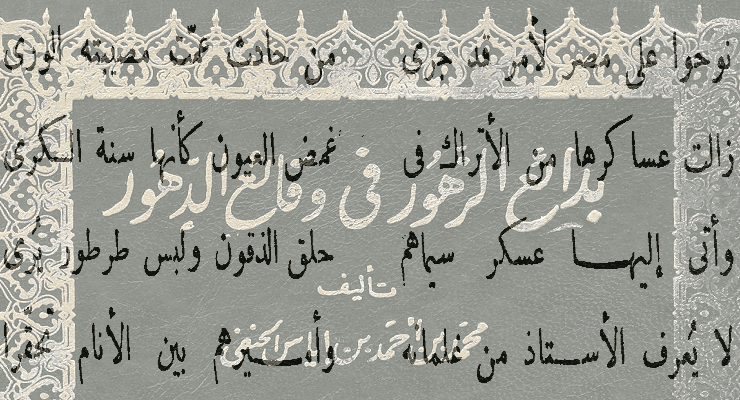 نوحوا على مصر لأمر قد جرى من حادث عمّت مصيبته الورى
زالت عساكرها من الأتراك فى غمض العيون كأنها سنة الكرى
بدائع الزهور في وقائع الدهور
وأتى إليها عسكر سيماهم حلق الذقون ولبس طرطور يُرى
تأليف
لا يُعرف الأستاذ من غلمانه وأميرهم بين الأنام تحقّرا
محمد بن أحمد بن إياس الحنفى